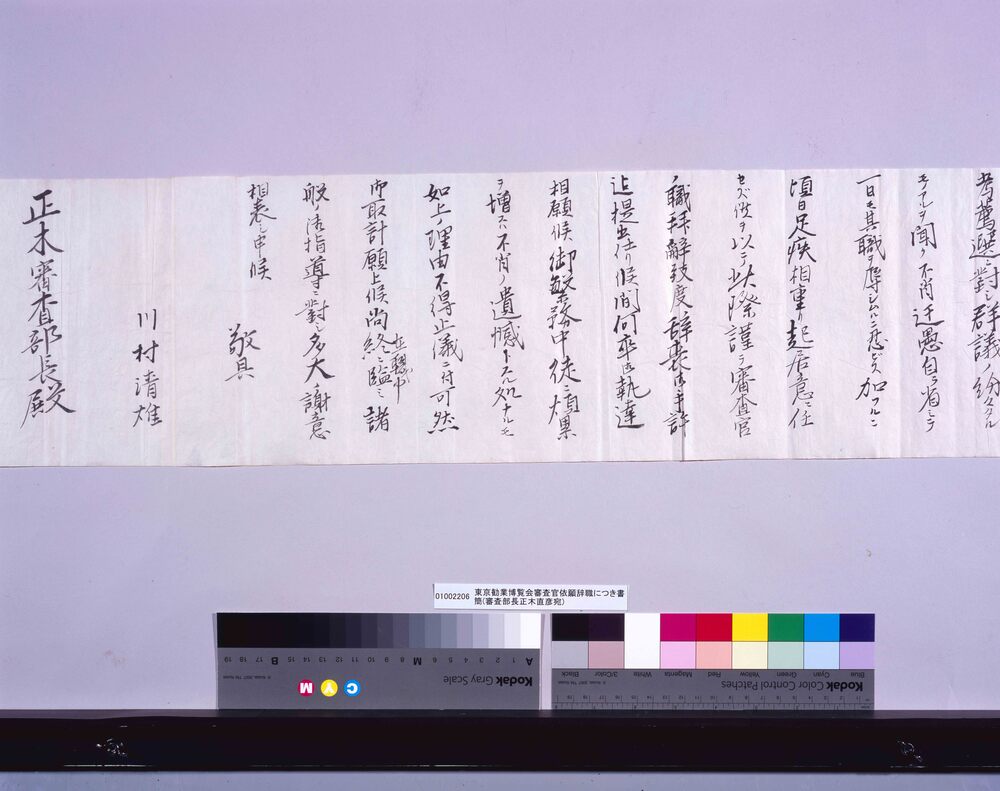 考薦選ニ對シ群議ノ紛々タル
モノアルヲ聞ク不肖迂愚自ラ省ミテ
一日モ其職ヲ辱シムルニ忍ビス加フルニ
頃日足疾相重リ起居意ニ任
セズ候ヲ以テ此際謹テ審査官
ノ職拜辭致度辞表左手許
迄提出仕リ候間何卒御執達
相願候御繁務中徒ニ煩累
ヲ増スハ不肖ノ遺憾トスル処ナルモ
如上ノ理由不得止儀ニ付可然
御取計願上候尚終ニ臨ミ諸
在職中
般ノ御指導ニ對シ多大ノ謝意
相表シ申候
敬具
川村清雄
正木審査部長殿
01002206
東京勧業博覧会審査官依願辞職につき書
簡(審査部長正木直彦宛)
Kodak Gray Scale
A 1 2 3 4 5 6 M 8 9 10 11 12 13 14 15 B 17 18 19
C Y M
Kodak Color Control Patches
Blue Cyan Green Yellow Red Magenta White 3/Color Black